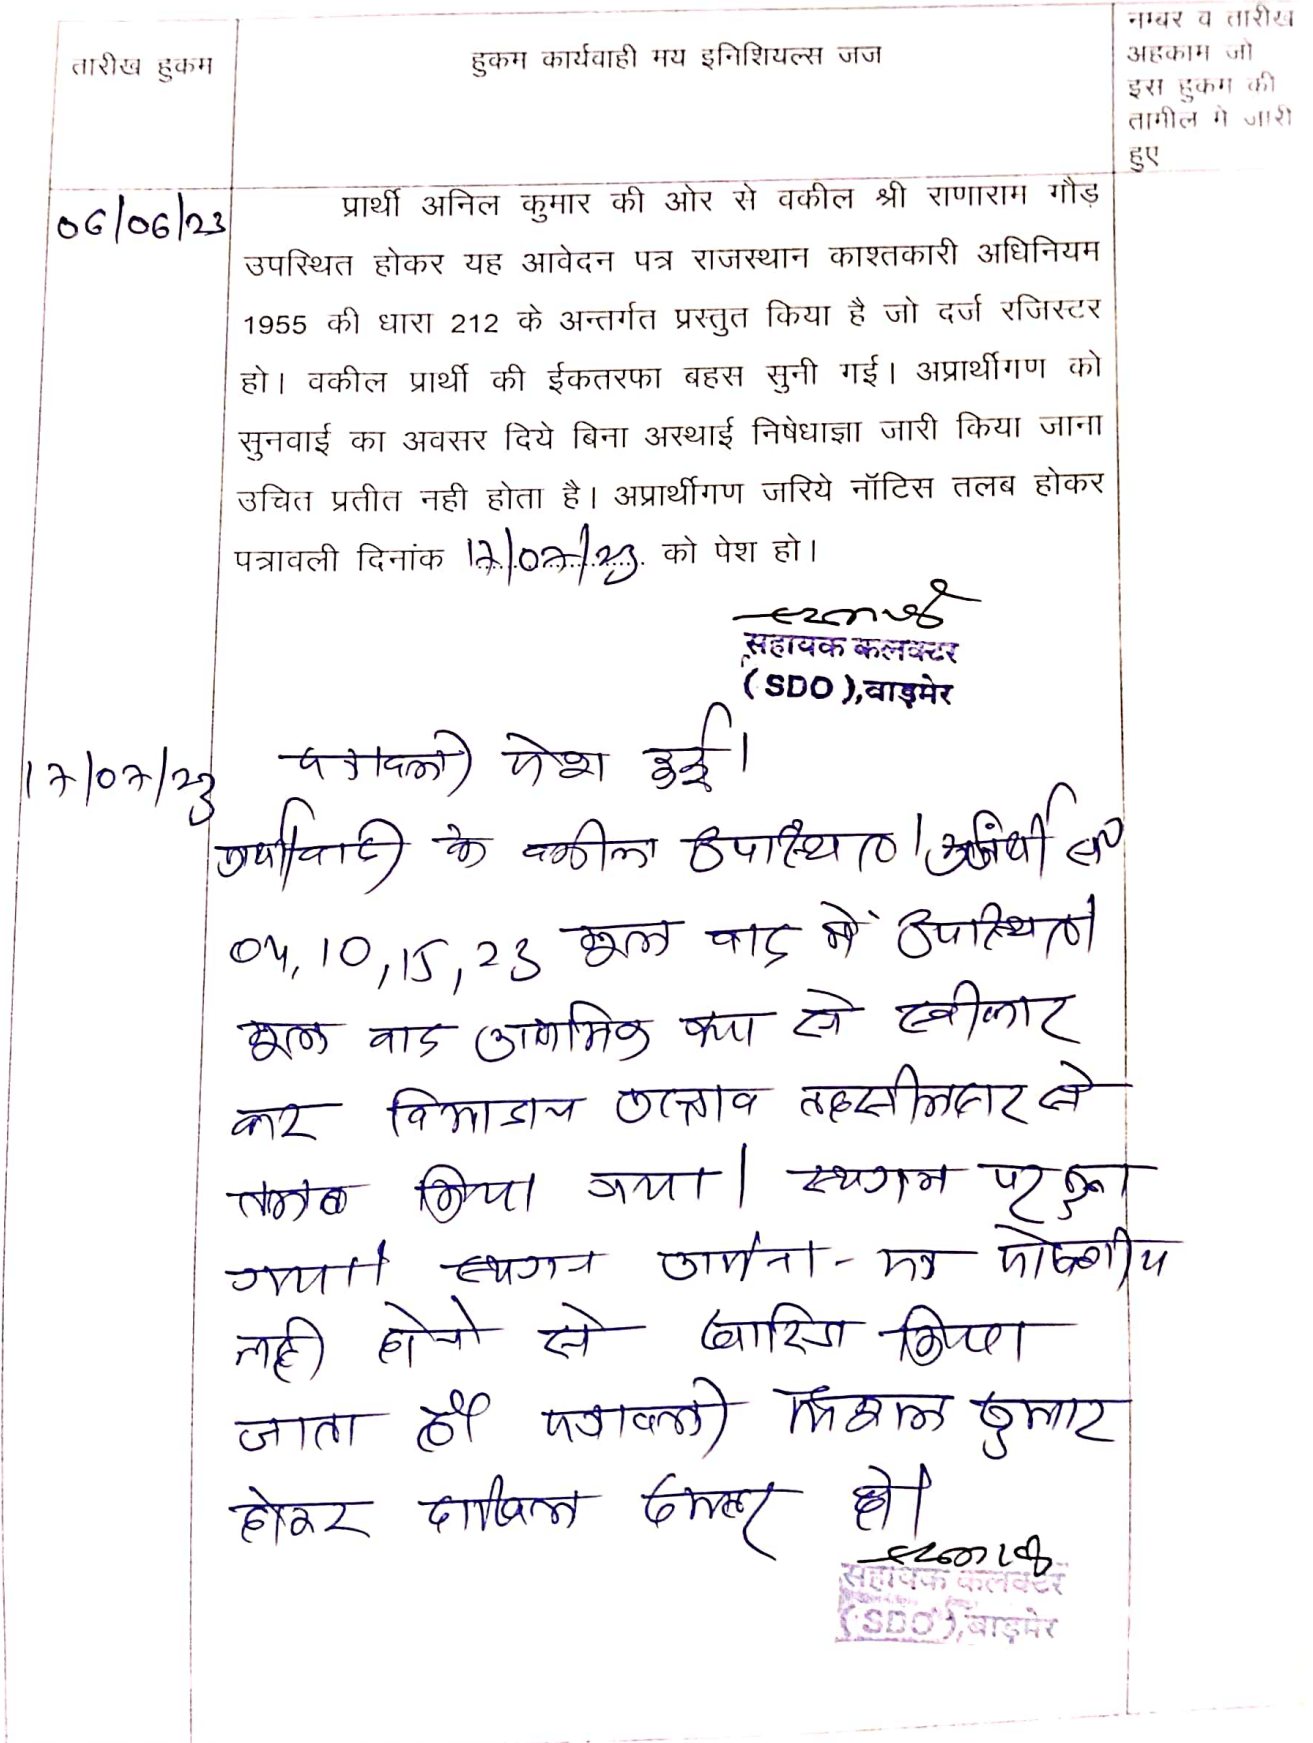 तारीख हुकम
हुकम कार्यवाही मय इनिशियल्स जज
नम्बर व तारीख
अहकाम जो
इस हुकम की
तामील मे जारी
हुए
06/06/23
प्रार्थी अनिल कुमार की ओर से वकील श्री राणाराम गौड़
उपस्थित होकर यह आवेदन पत्र राजस्थान काश्तकारी अधिनियम
1955 की धारा 212 के अन्तर्गत प्रस्तुत किया है जो दर्ज रजिस्टर
हो। वकील प्रार्थी की ईकतरफा बहस सुनी गई। अप्रार्थीगण को
सुनवाई का अवसर दिये बिना अस्थाई निषेधाज्ञा जारी किया जाना
उचित प्रतीत नही होता है। अप्रार्थीगण जरिये नॉटिस तलब होकर
पत्रावली दिनांक 17/07/23 को पेश हो।
सहायक कलक्टर
(SDO),बाड़मेर
17/07/23
पत्रावली पेश हुई।
के वकील उपस्थित। अप्रार्थी सं
04, 10, 15, 23 मूल वाद में उपस्थित।
मूल वाद प्राथमिक रूप से स्वीकार
कर विभाजन प्रस्ताव तहसीलदार से
तलब किया गया। स्थगन पर सुना
गया। स्थगन प्रार्थना-पत्र पोषणीय
नही होने से खारिज किया
जाता है। पत्रावली फैसल शुमार
होकर दाखिल दफ्तर हो।
सहायक कलक्टर
(SDO),बाड़मेर